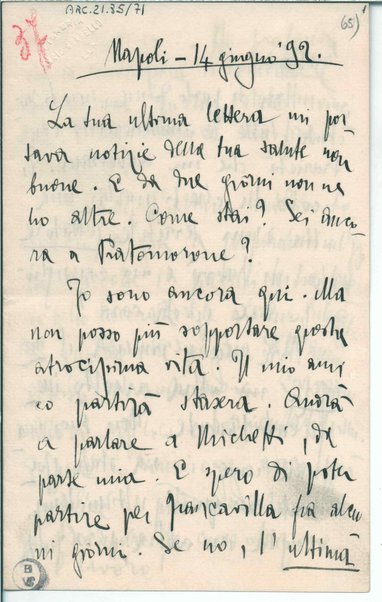 ARC.21.35/71
65)
37
Napoli – 14 giugno '92.
La tua ultima lettera mi por
tava notizie della tua salute non
buone. E da due giorni non ne
ho altre. Come stai? Sei anco
ra a Fratomorone?
Io sono ancora qui. Ma
non posso più sopportare questa
atrocissima vita. Il mio ami
co partirà stasera. Andrà
a parlare a Michetti, da
parte mia. E spero di poter
partire per Francavilla fra alcu
ni giorni. Se no, l'ultima